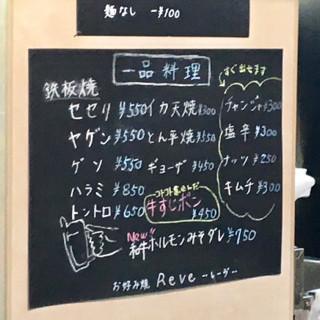 麺なし -¥100
一品料理
鉄板焼
セセリ ¥550
ヤゲン ¥550
ゲソ ¥550
ハラミ ¥850
トントロ ¥650
イカ天焼 ¥300
とん平焼 ¥550
ギョーザ ¥450
コトコト煮込んだ
牛すじポン ¥450
すぐ出せます
チャンジャ ¥300
塩辛 ¥300
ナッツ ¥250
キムチ ¥300
New
和牛ホルモンみそダレ ¥750
お好み焼 Reve ～レーヴ～